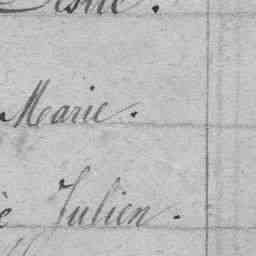 Marie.
è Julien.